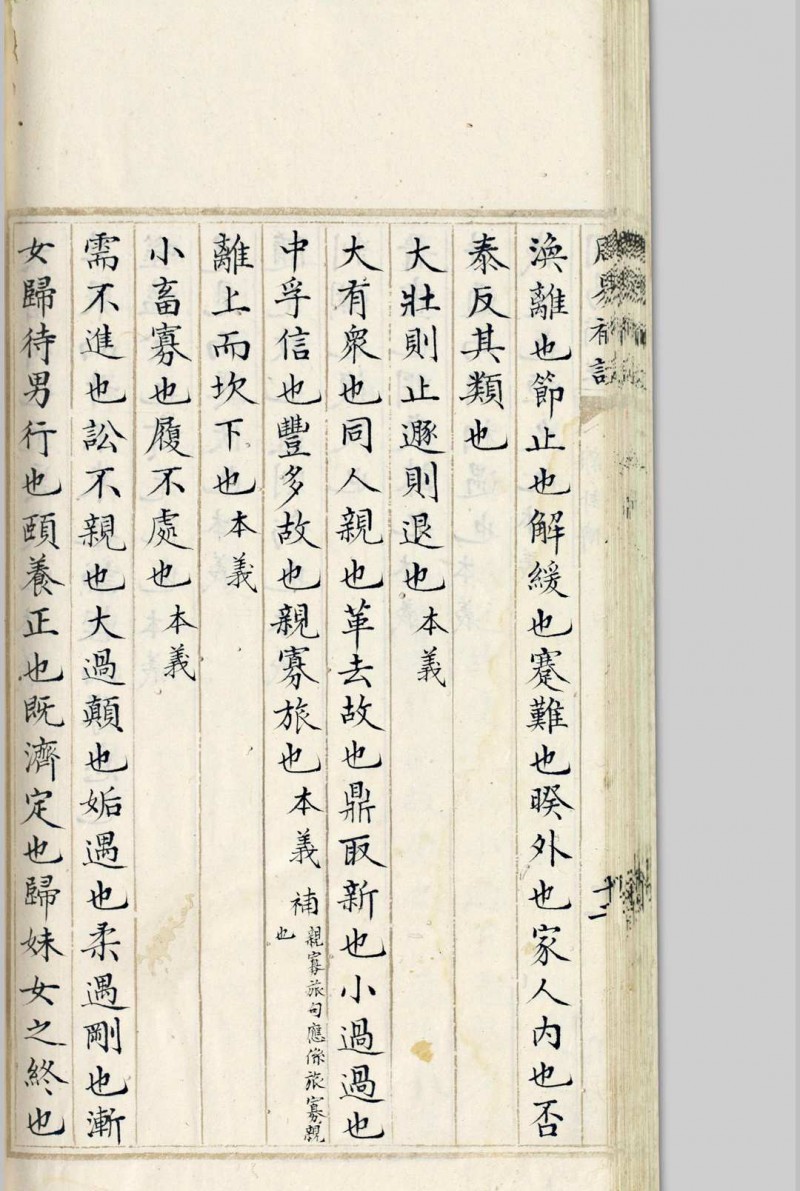 渙離也節止也解緩也蹇難也暌外也家人內也否
泰反其類也
大壯則止遯則退也本義
大有衆也同人親也革去故也鼎取新也小過過也
中孚信也豐多故也親寡旅也本義 補親寡旅句應係旅寡親也
離上而坎下也本義
小畜寡也履不處也本義
需不進也訟不親也大過顛也姤遇也柔遇剛也漸
女歸待男行也頤養正也既濟定也歸妹女之終也
十二